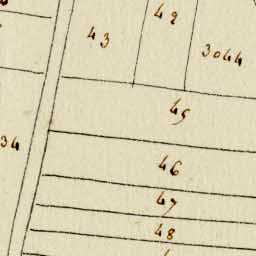 42
43
3044
45
34
46
47
48